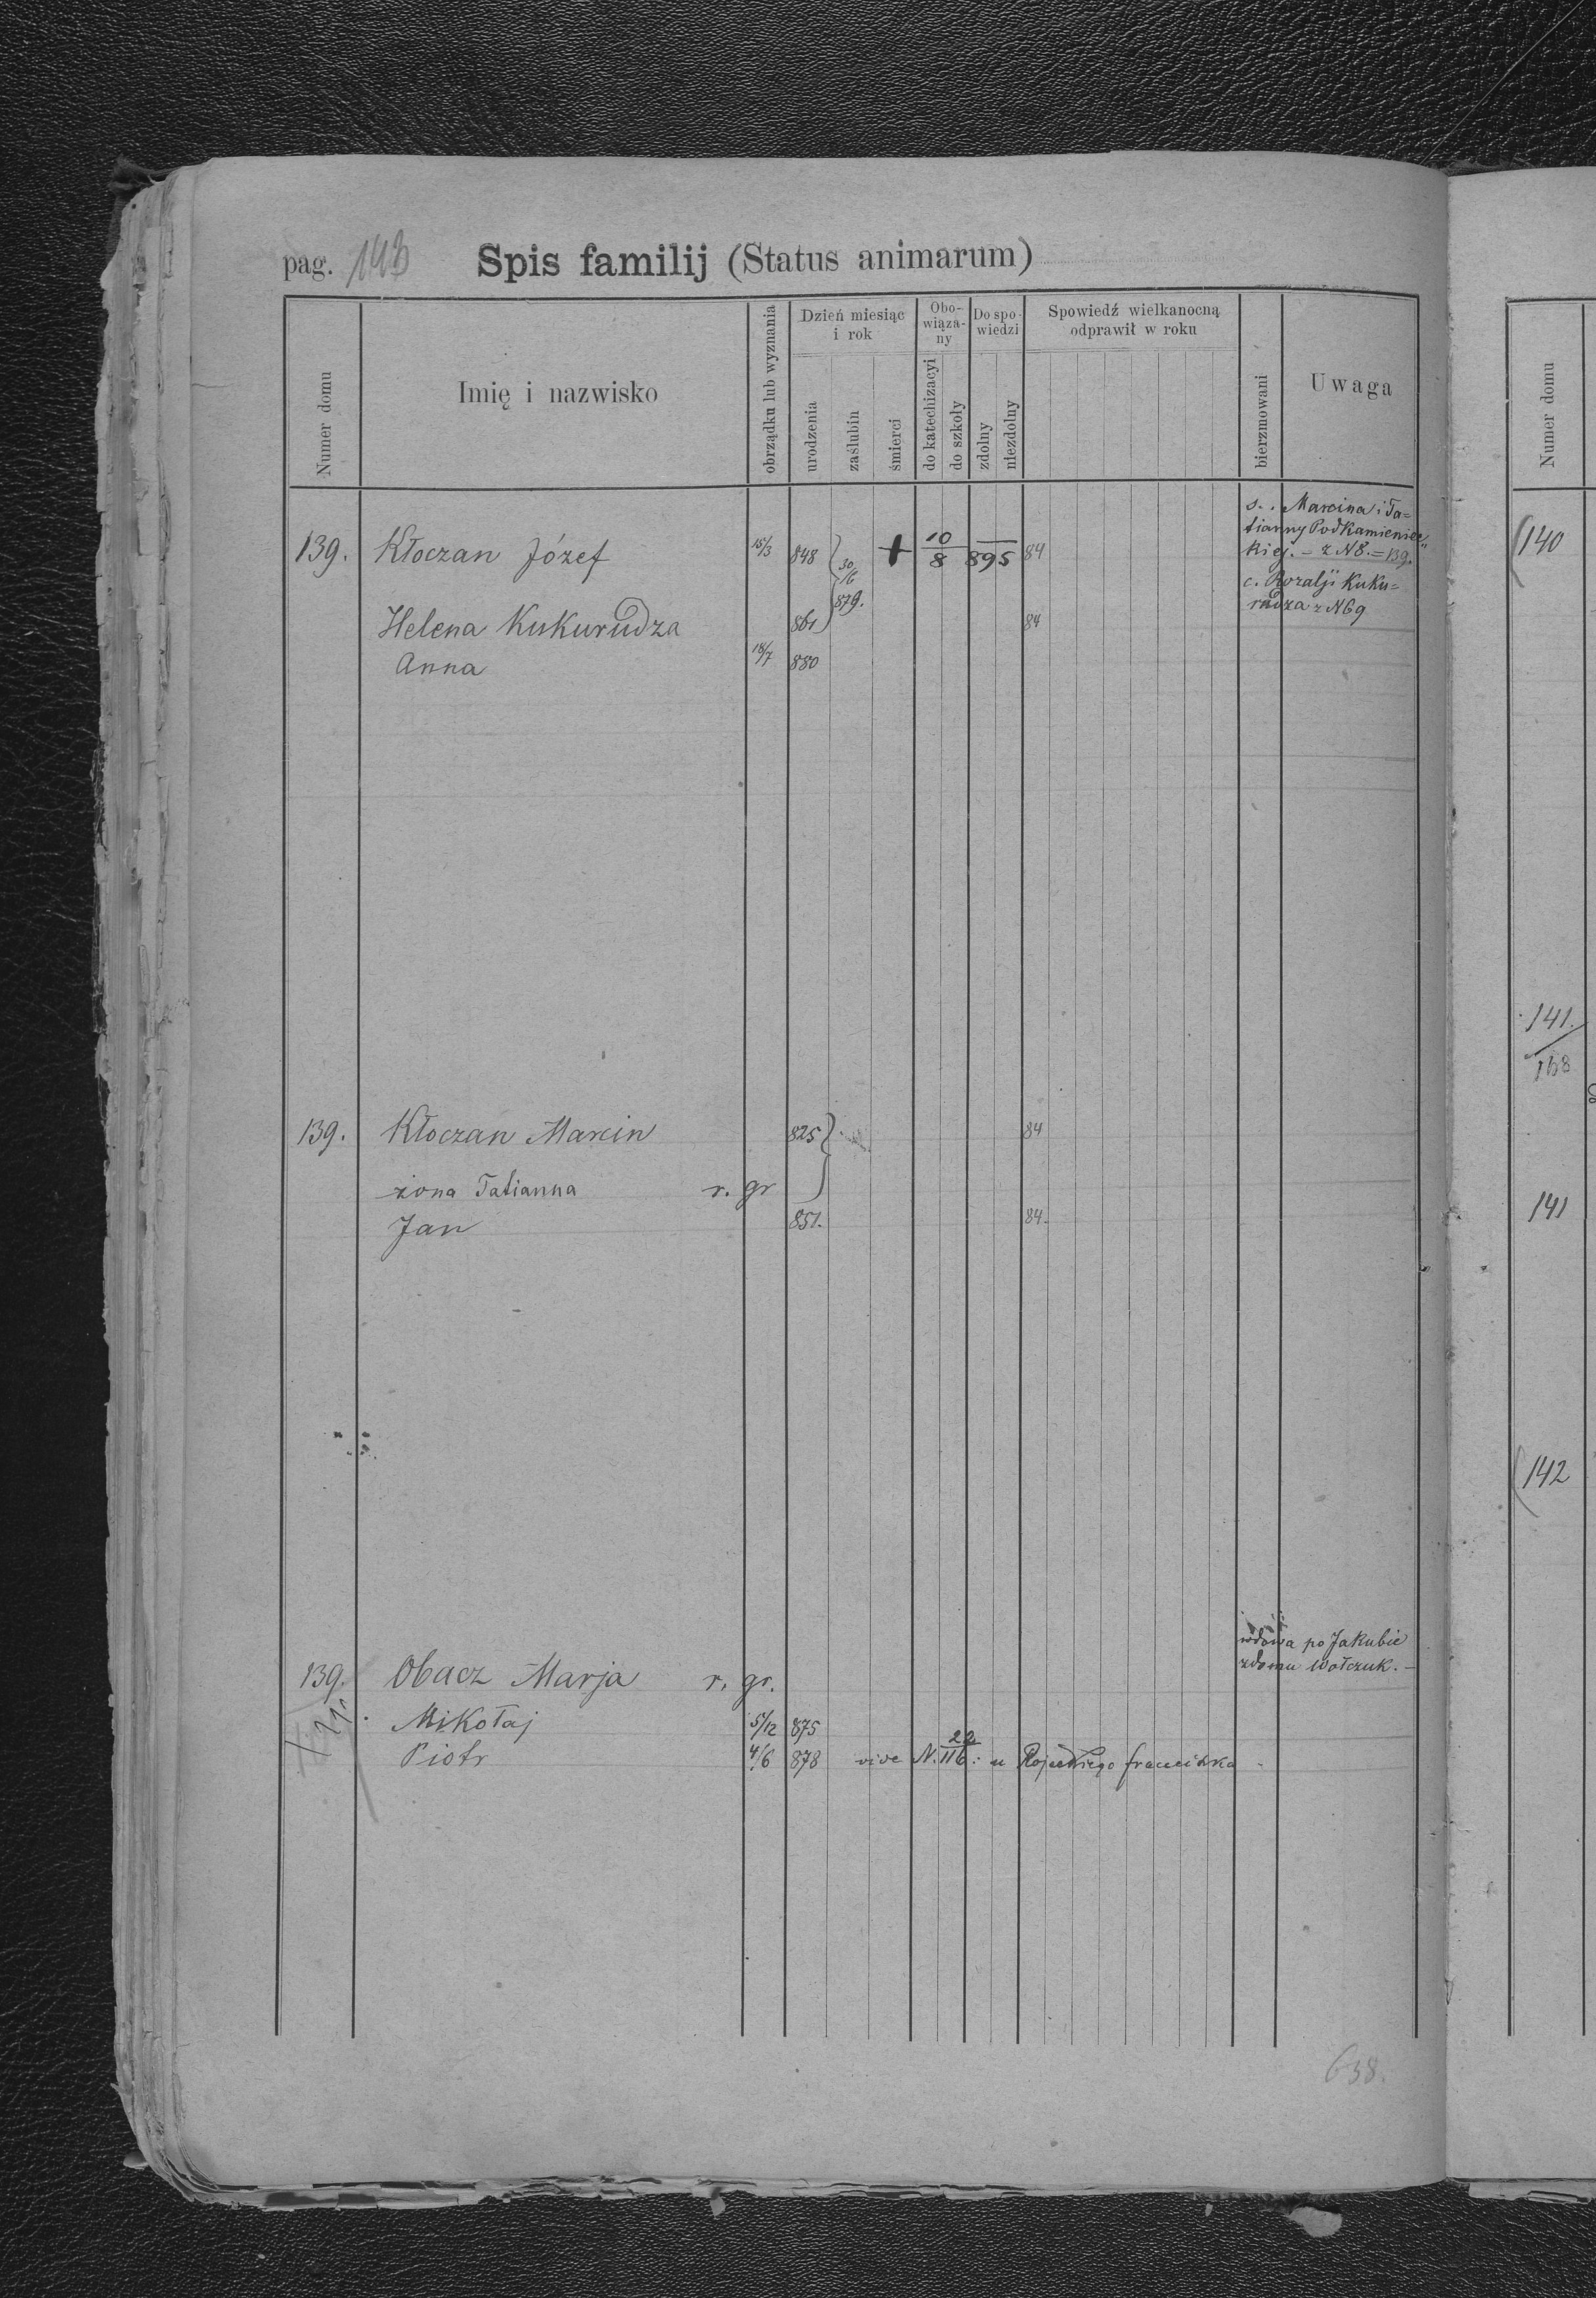 pag. 143 Spis familij (Status animarum)
Numer domu
Imię i nazwisko
obrządku lub wyznania
Dzień miesiąc i rok
urodzenia
zaślubin
śmierci
Obo-
wiąza-
ny
do katechizacyi
do szkoły
Do spo-
wiedzi
zdolny
niezdolny
Spowiedź wielkanocną
odprawił w roku
bierzmowani
Uwaga
Numer domu
139. Kłoczan Józef 15/3 848 30/6 879. + 10/8 895 84
s. Marcina i Ta=
tianny Podkamieniec„
kiej. = z N 8. = 139.
c. Rozalji Kuku=
rudza z N 69
Helena Kukurudza 861 84
Anna 18/7 880
139. Kłoczan Marcin 825 84
żona Tatianna r. gr
Jan 851. 84.
wdowa po Jakubie
z domu Wołczuk. -
139. Obacz Marja r. gr.
Mikołaj 5/12 875
Piotr 4/6 878 vide N. 116 : u
638.
140
141.
168
141
142